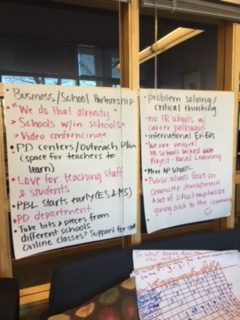 Business/School Partnership
• "We do that already"
> Schools w/in schools
> Video conference
• PD centers/outreach
(space for teachers to
learn)
• Love for teaching staff
& students
• PBL starts early (ES & MS)
• PD department
• Take bits & pieces from
different schools
Online classes? Support for
problem solving/
critical thinking
• no IB schools w/
career pathways
• international
• We are unique!
IB schools lacked
Project-based learning
• More AP school-
• Public schools focus on
character development
• A lot of school emphasize
giving back to the